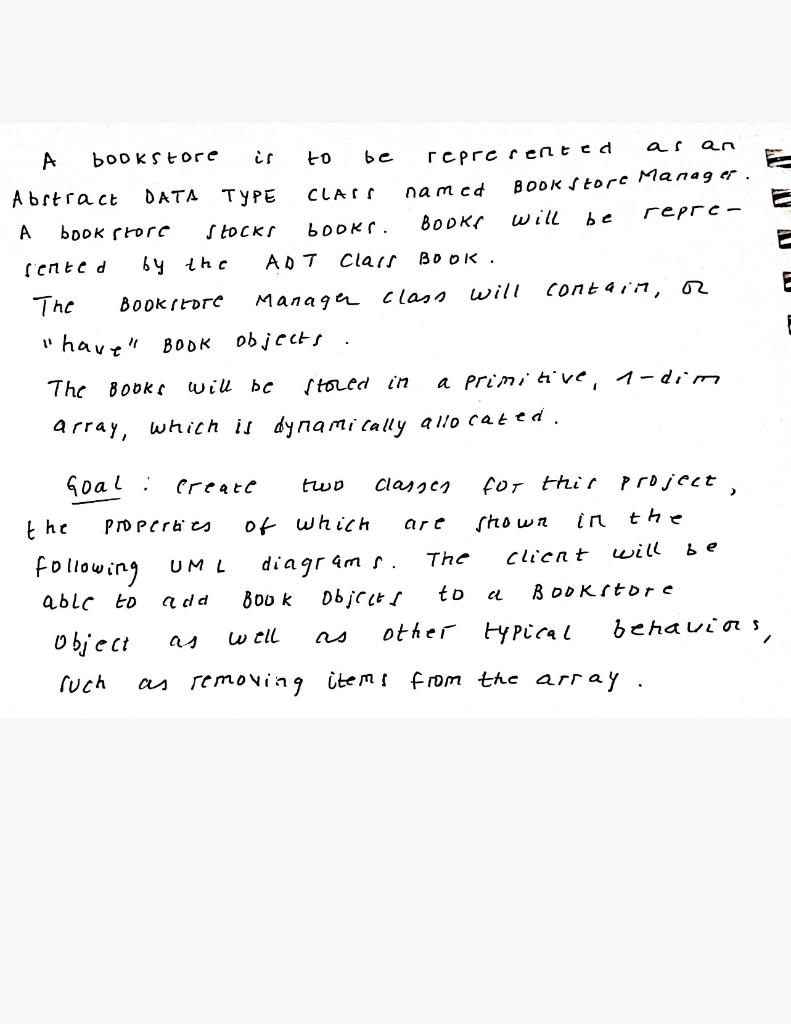 A bookstore is to be represented as an
Abstract DATA TYPE CLASS named BOOKStore Manager.
A bookstore stocks books. Books will be repre-
sented by the ADT Class BOOK.
The Bookstore Manager class will contain, or
"have" BOOK objects.
The BOOKs will be stored in a primitive, 1-dim
array, which is dynamically allocated.
Goal: Create two classes for this project,
the properties of which are shown in the
following UML diagrams. The client will be
able to add BOOK Objects to a Bookstore
Object as well as other typical behaviors,
such as removing items from the array.